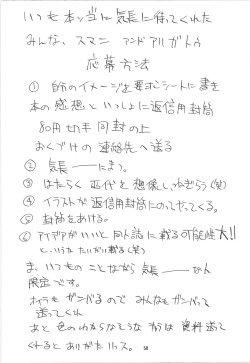 いつも本ッ当に気長に待ってくれた
みんな、スマン アンド アルガトウ
応募方法
① 自分のイメージを要ポシートに書き
本の感想といっしょに返信用封筒
80円切手同封の上
おくづけの連絡先へ送る
② 気長――に待つ。
③ はたらく 亜代と想像し、ねぎらう(笑)
④ イラストが返信用封筒にのってやってくる。
⑤ 封筒をあける。
⑥ アイデアがいいと同人誌に載る可能性大!!
というか たいがい載る(笑)
ま、いつものことながら気長――なん
限定です。
オイラもガンバるので みんなもガンバって
送ってくれ
あと 色のわからなそうな キャラは 資料送って
くれると ありがたいッス。